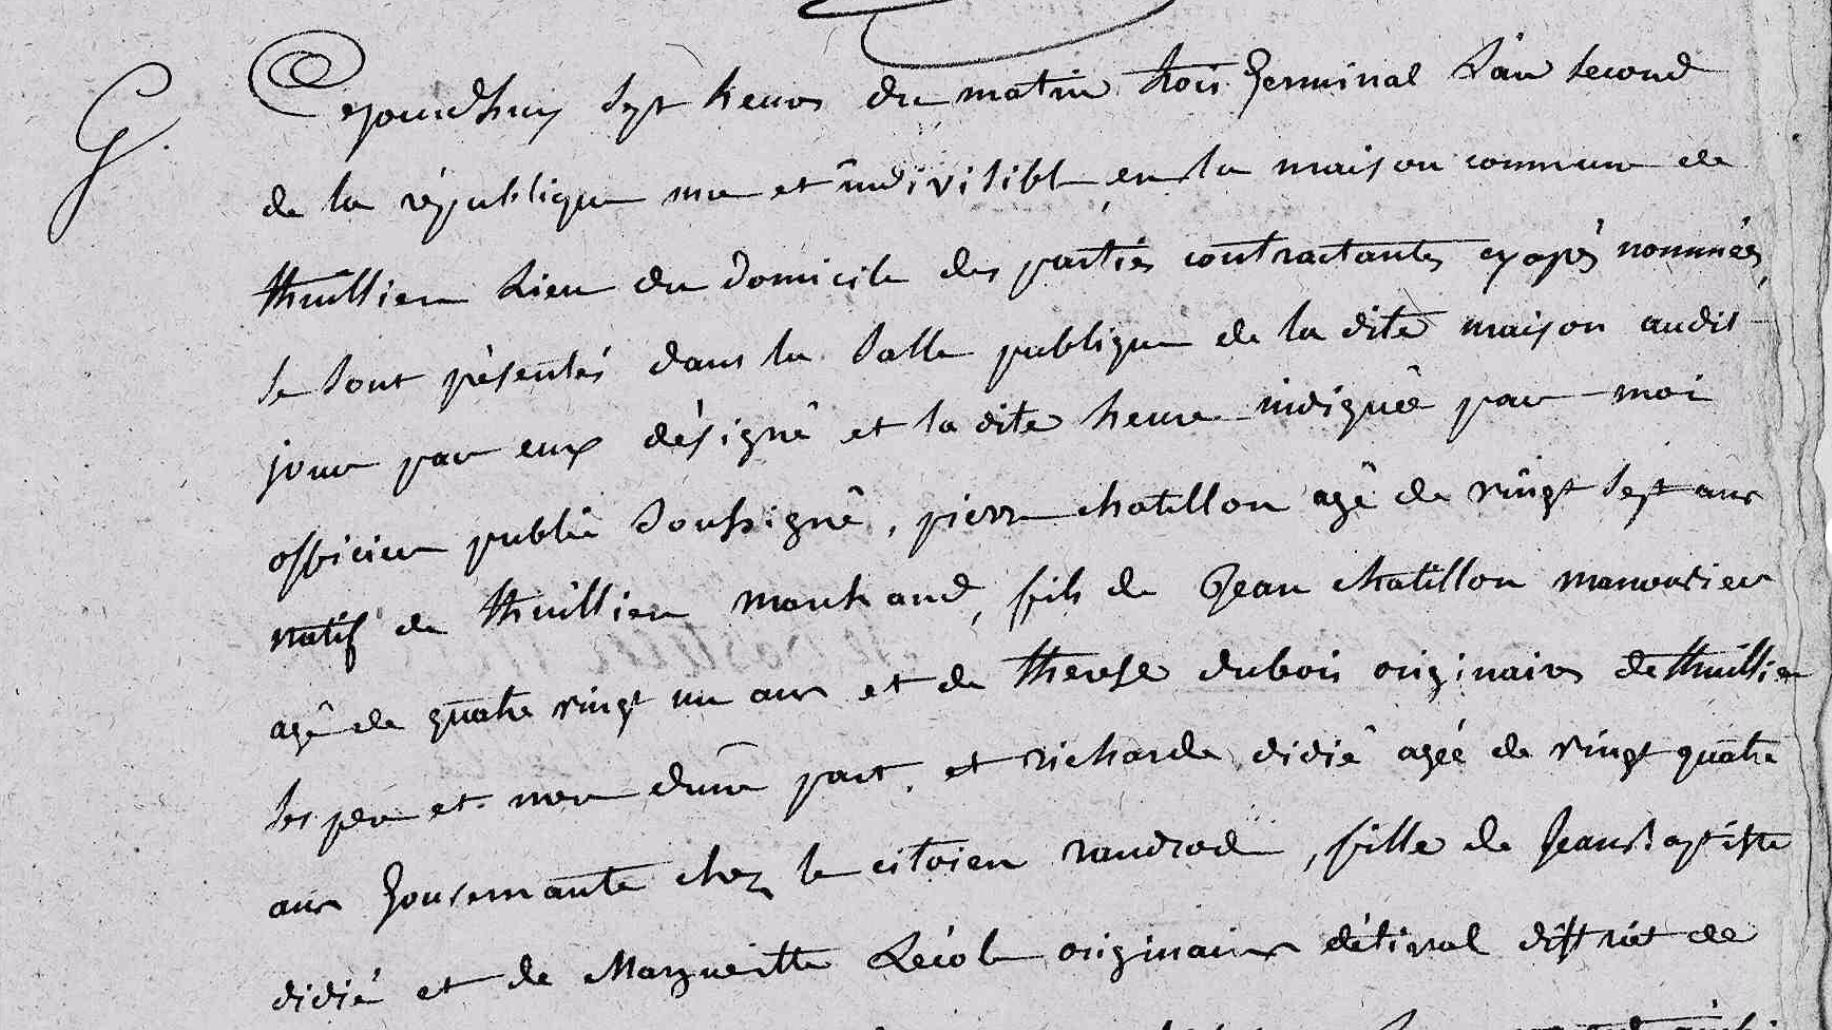 G.
Cejourdhuy sept heures du matin trois Germinal L'an second
de la république une et indivisible, en la maison commune de
thuillier Lieu du domicile des partiés contractantes cyapès nommées,
se sont présentés dans la salle publique de la dite maison audit
jour par eux désigné et la dite heure indiquée par moi
officier public soussigné, pierre chatillon agé de vingt sept ans
natif de thuillier marchand, fils de Jean chatillon manouvrier
agé de quatre vingt un ans et de therese dubois originaires de thuillier
ses pere et mere dune part, et richarde didié agéé de vingt quatre
ans Gouvernante chez le citoien, fille de Jean Baptiste
didié et de Margueritte Lécole originaires détival district de